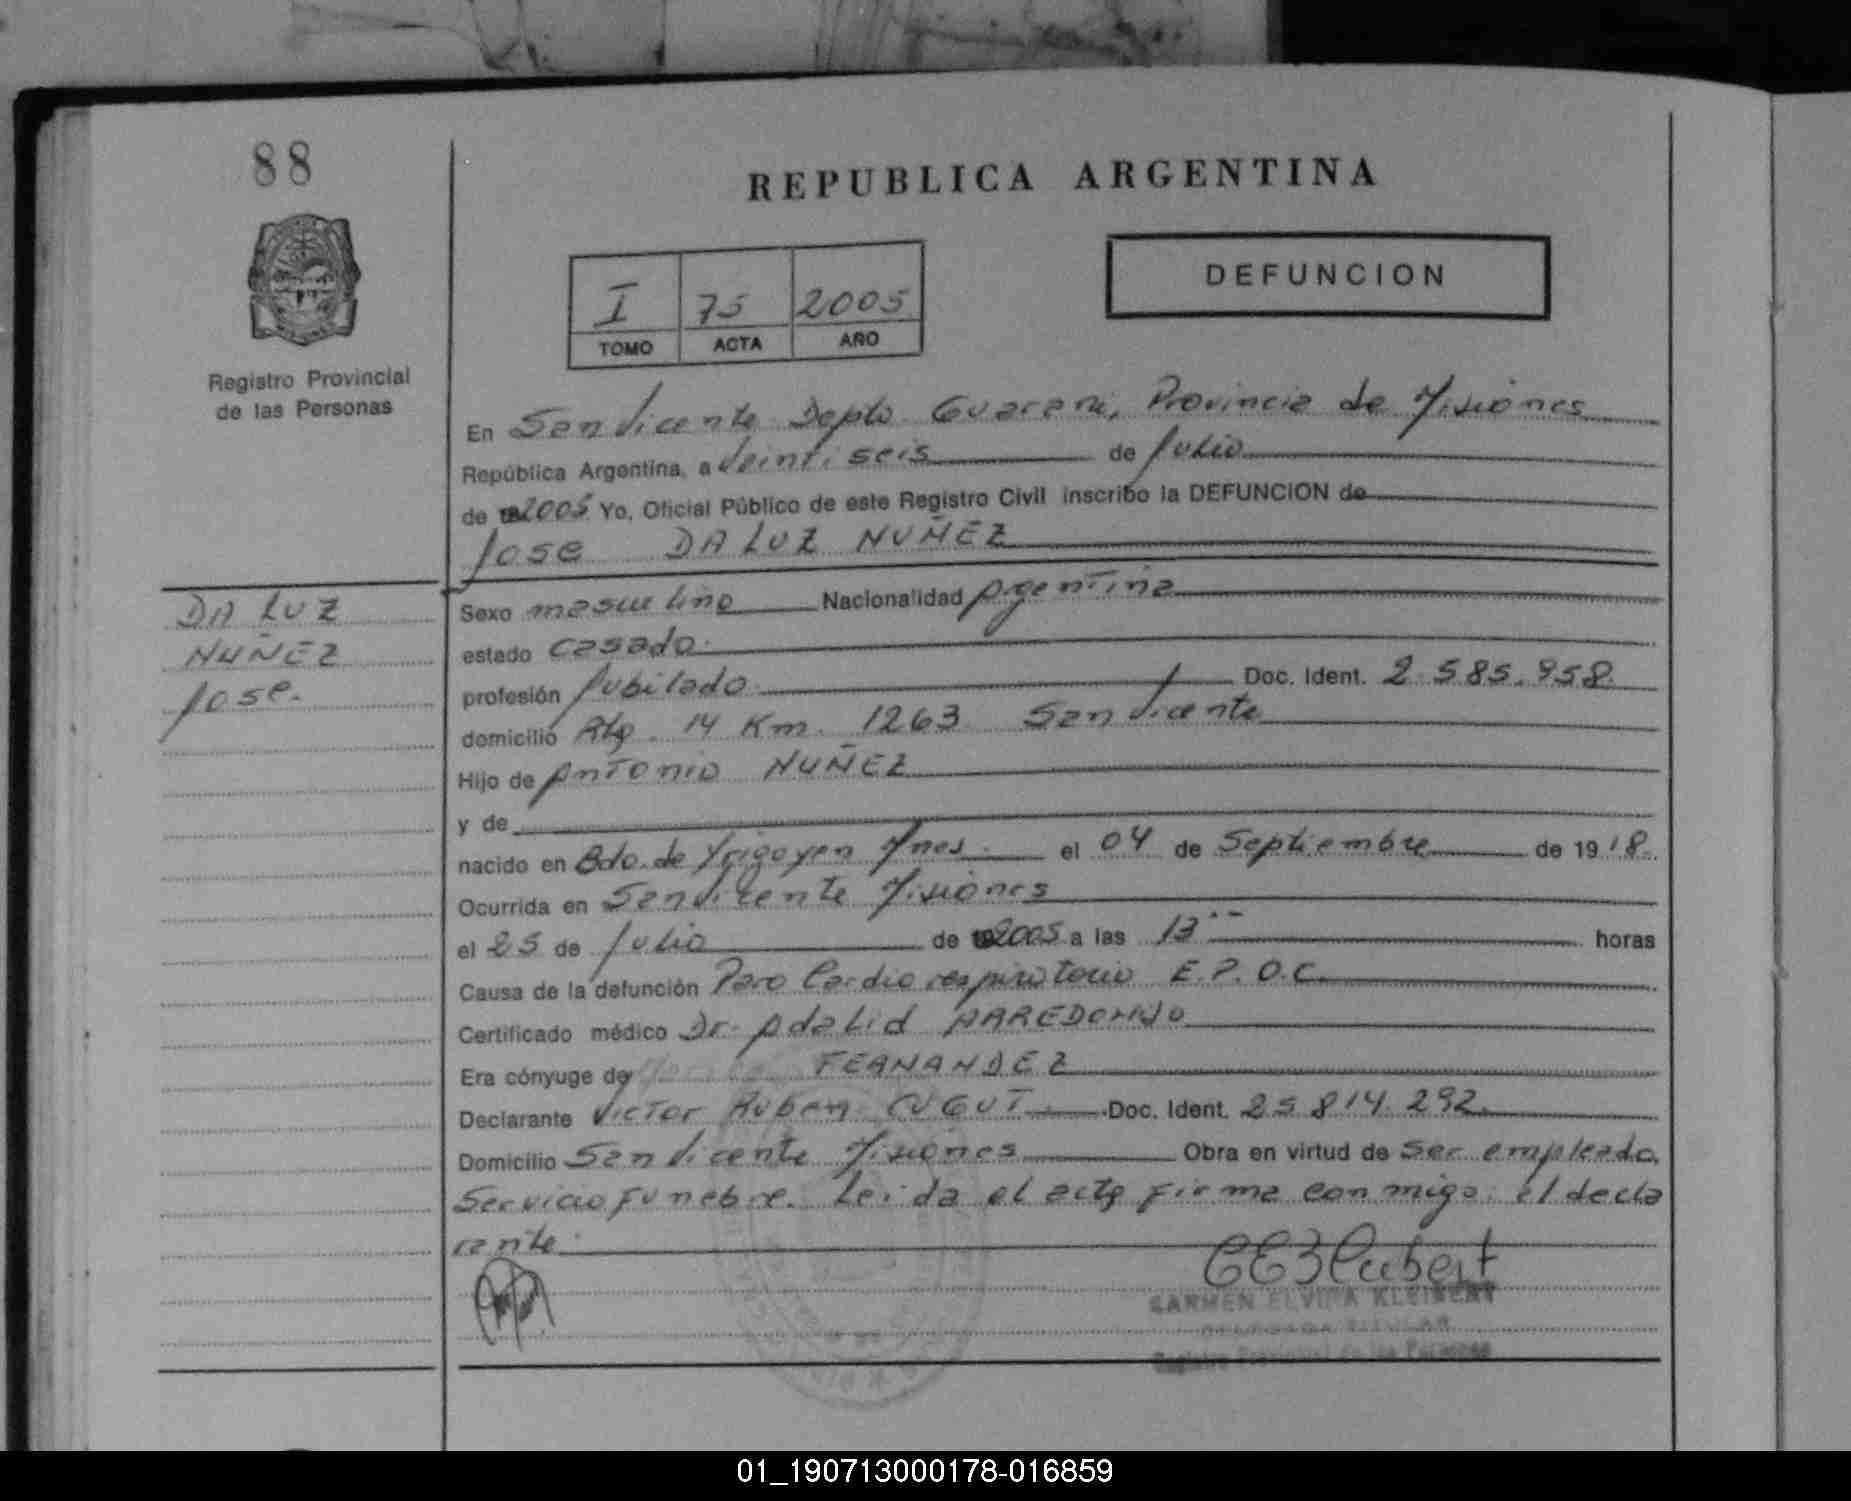 88
REPUBLICA ARGENTINA
DEFUNCION
I 75 2005
TOMO ACTA AÑO
Registro Provincial
de las Personas
En San Vicente Depto. Guarani, Provincia de Misiones
República Argentina, a Veintiseis de Julio
de 2005 Yo, Oficial Público de este Registro Civil inscribo la DEFUNCION de
Jose DA LUZ NUÑEZ
DA LUZ
NUÑEZ
Jose.
Sexo masculino Nacionalidad Argentina
estado casado.
profesión Jubilado. Doc. Ident. 2.585.958.
domicilio Rta. 14 Km. 1263 San Vicente
Hijo de Antonio NUÑEZ
y de
nacido en Bdo. de Yrigoyen Mnes. el 04 de Septiembre de 1918.
Ocurrida en San Vicente Misiones
el 25 de Julio de 2005 a las 13 horas
Causa de la defunción Paro Cardio respiratorio E.P.O.C.
Certificado médico Dr. Adalid ARREDONDO
Era cónyuge de FERNANDEZ
Declarante Victor Ruben CUGUT. Doc. Ident. 25.814.292.
Domicilio San Vicente Misiones Obra en virtud de ser empleado,
Servicio Funebre. Leida el acta firma conmigo el decla
rante.
CARMEN ELVIRA KLEIBERT
DELEGADA TITULAR
Registro Provincial de las Personas
01_190713000178-016859